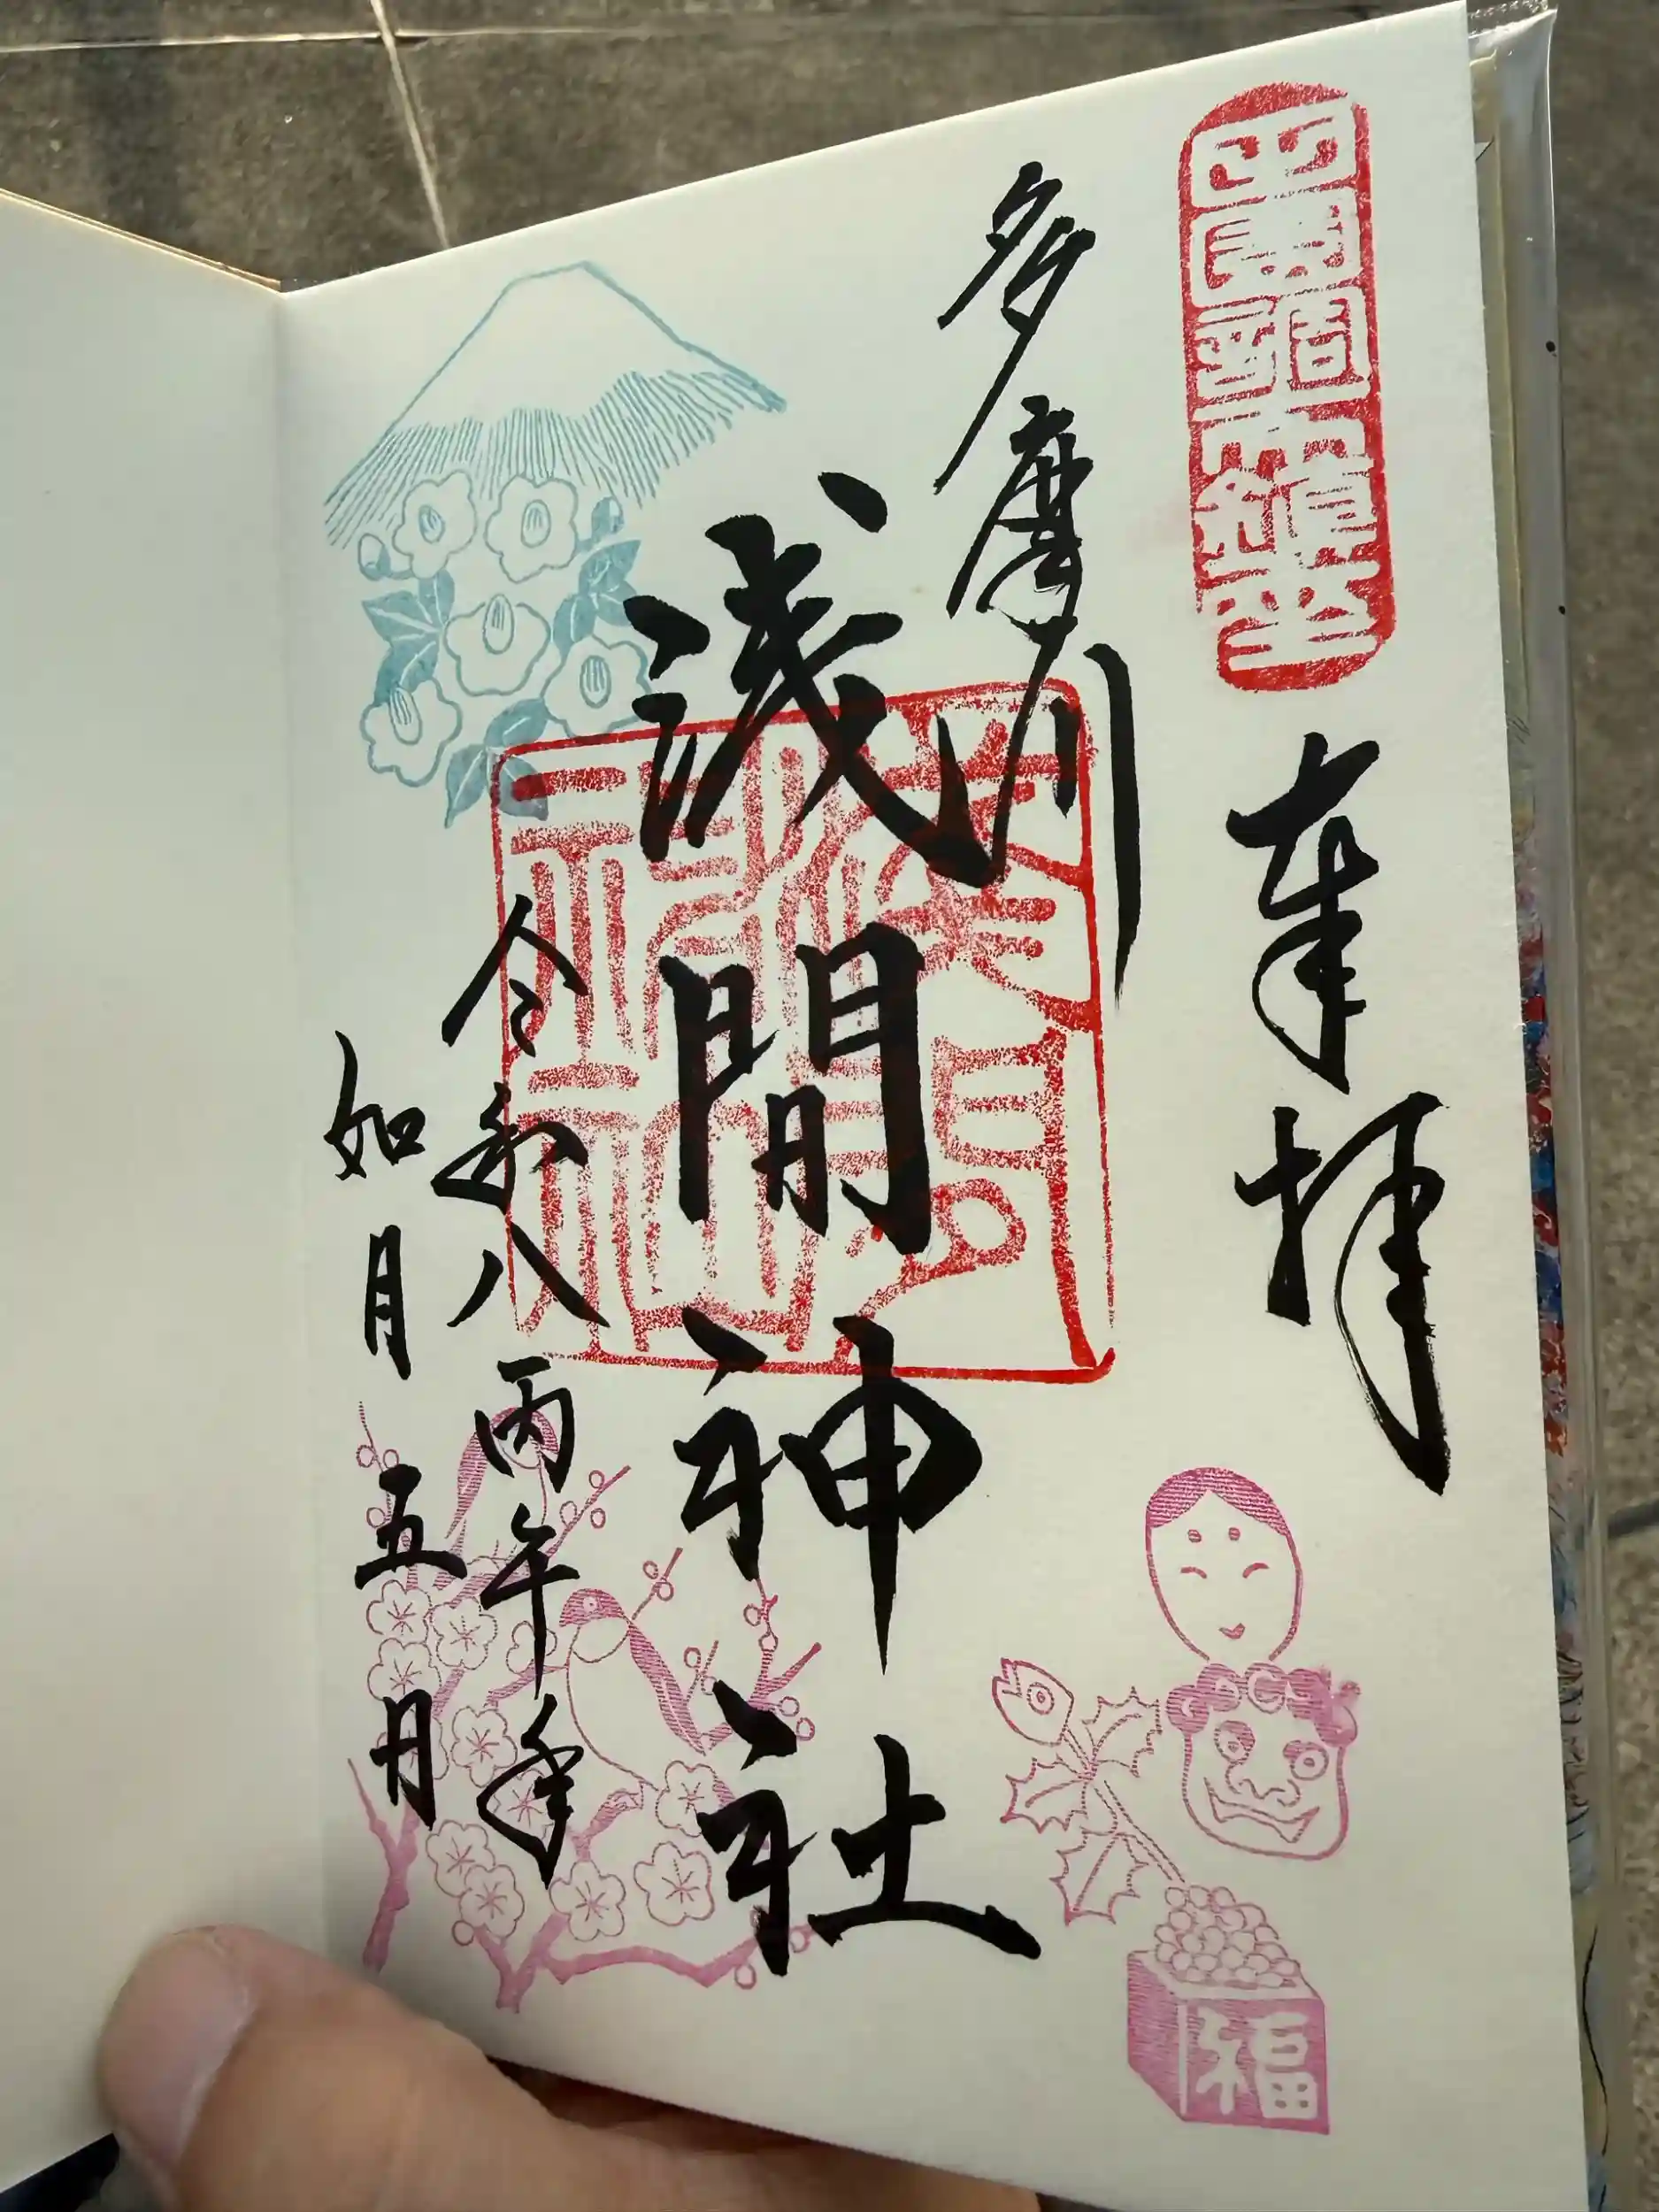 奉拝
多摩川
浅間神社
令和八丙午年
如月五日
福